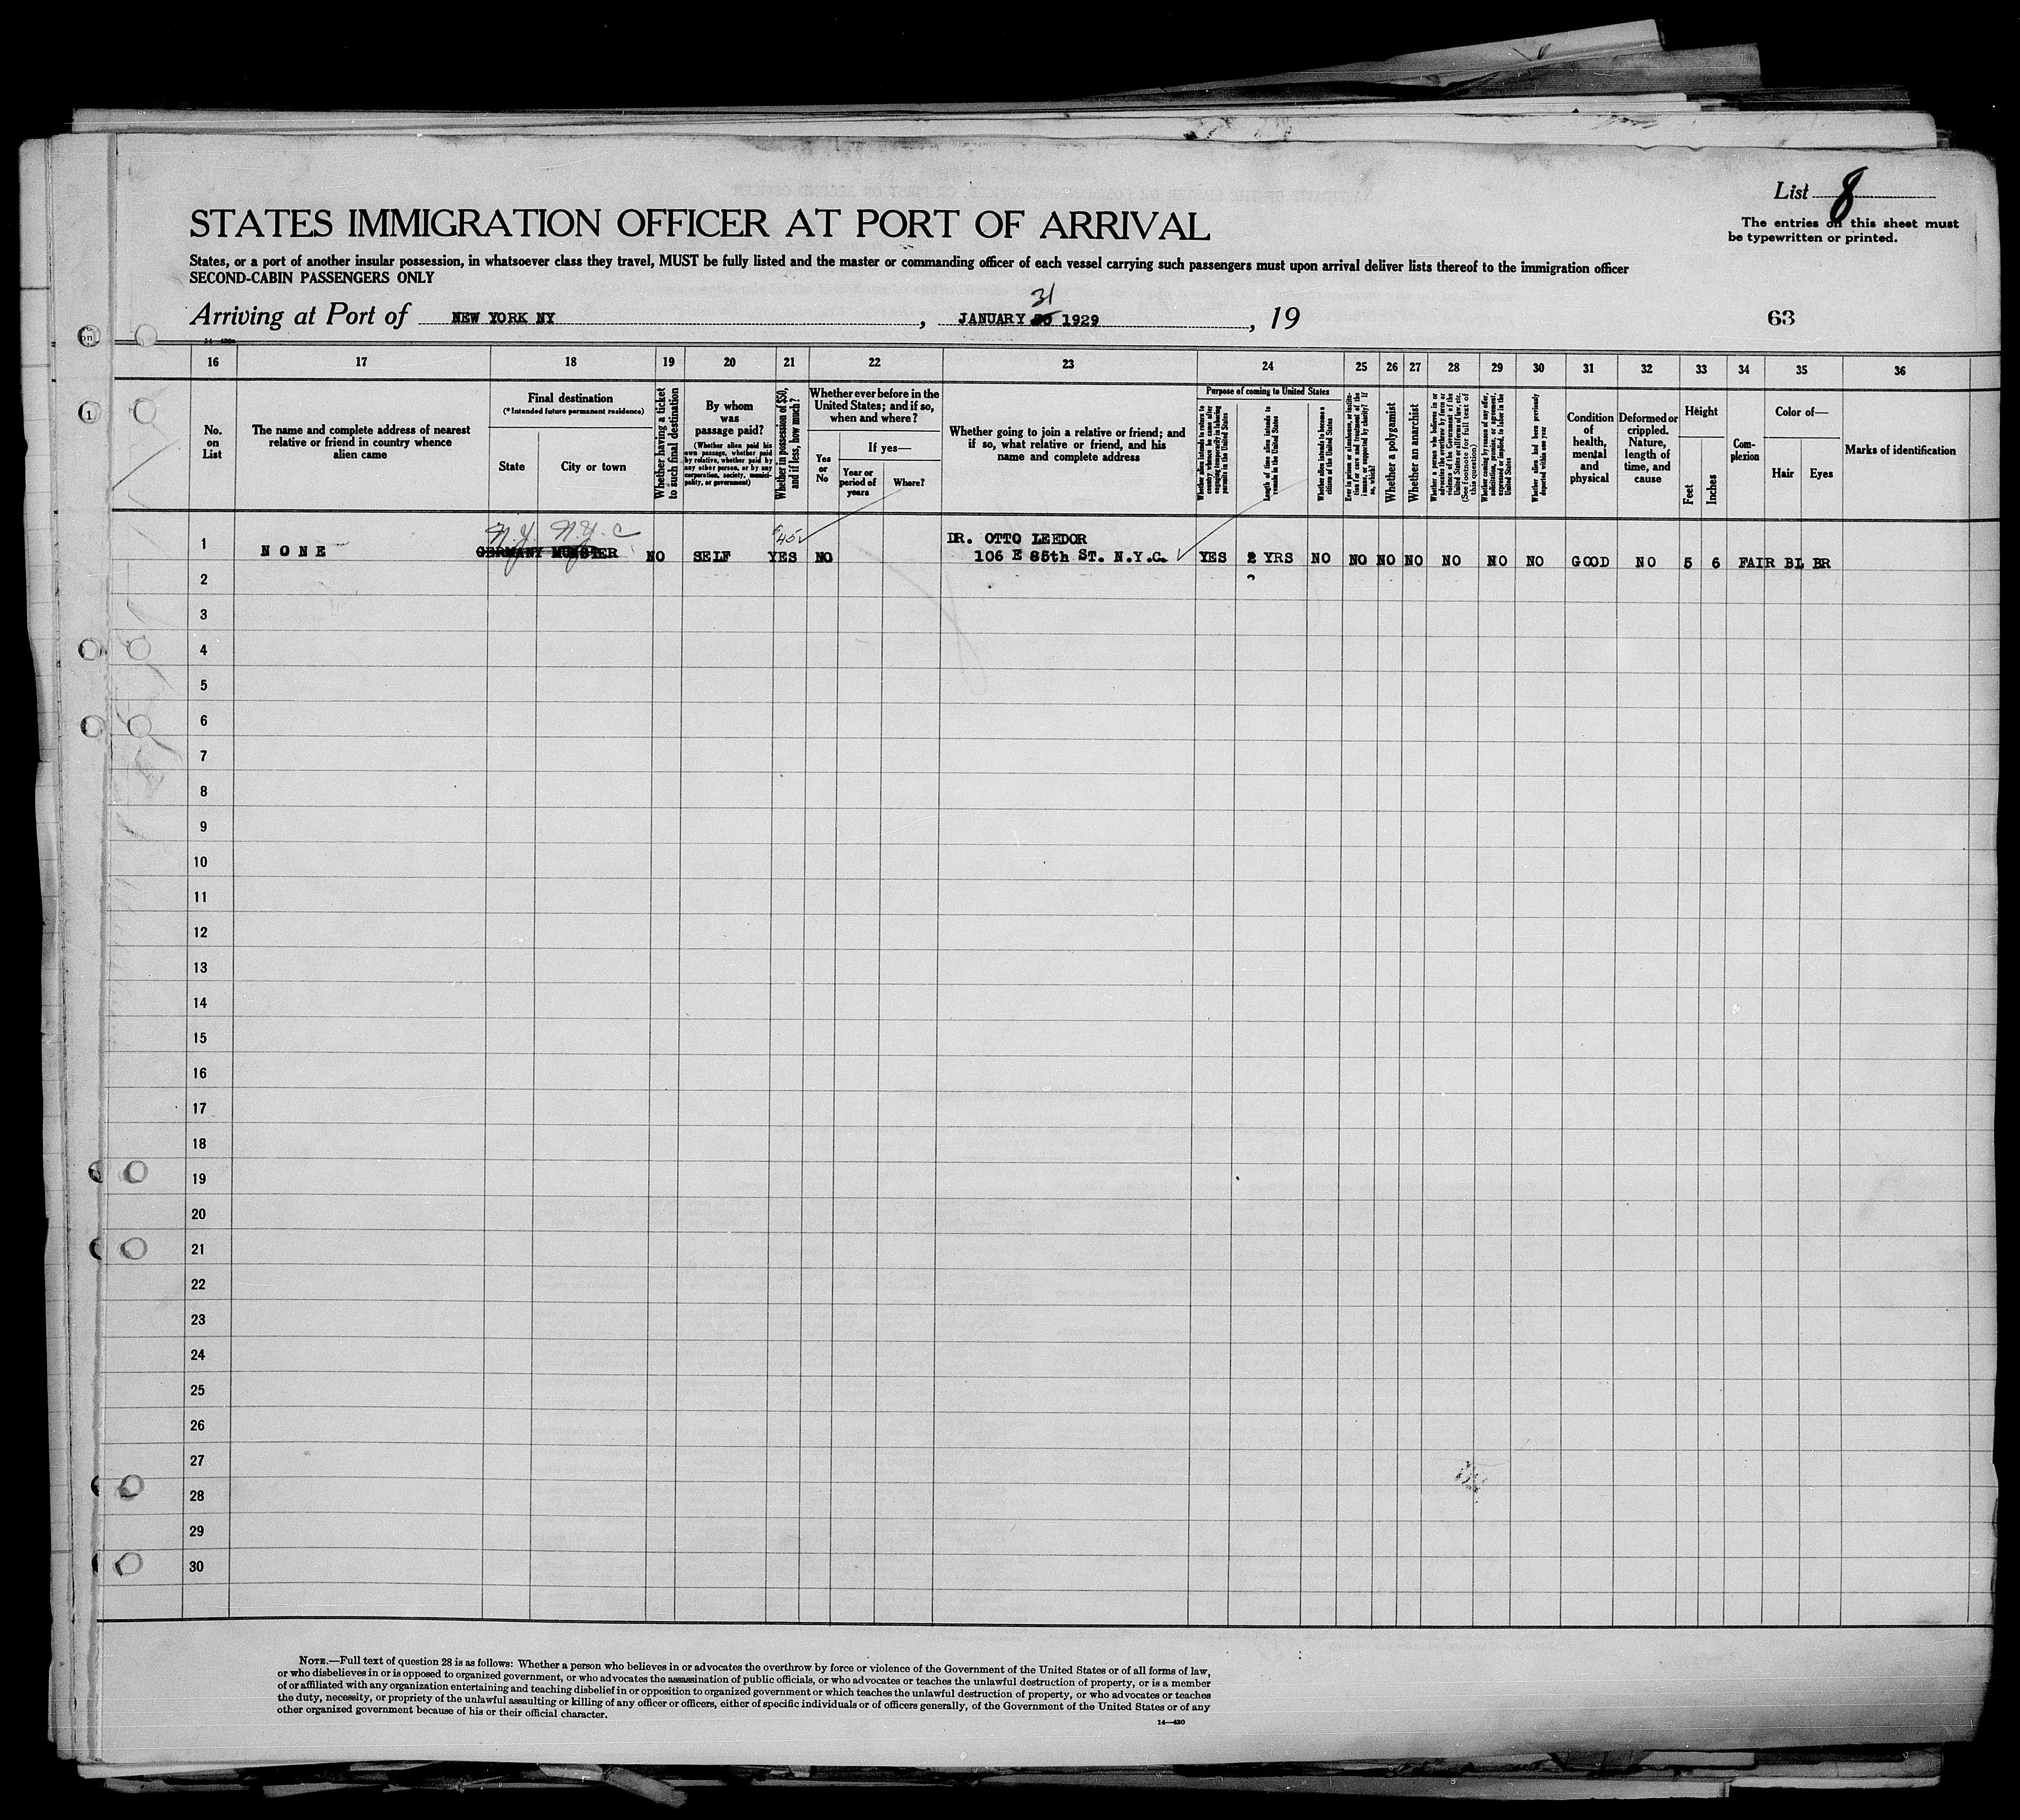 List 8
The entries on this sheet must
be typewritten or printed.
STATES IMMIGRATION OFFICER AT PORT OF ARRIVAL
States, or a port of another insular possession, in whatsoever class they travel, MUST be fully listed and the master or commanding officer of each vessel carrying such passengers must upon arrival deliver lists thereof to the immigration officer
SECOND-CABIN PASSENGERS ONLY
31
Arriving at Port of NEW YORK NY, JANUARY 30 1929, 19 63
16 17 18 19 20 21 22 23 24 25 26 27 28 29 30 31 32 33 34 35 36
No.
on
List
The name and complete address of nearest
relative or friend in country whence
alien came
Final destination
(*Intended future permanent residence)
State
City or town
Whether having a ticket
to such final destination
By whom
was
passage paid?
(Whether alien paid his
own passage, whether paid
by relative, whether paid by
any other person, or by any
corporation, society, munici-
pality, or government)
Whether in possession of $50,
and if less, how much?
Whether ever before in the
United States; and if so,
when and where?
Yes
or
No
If yes—
Year or
period of
years
Where?
Whether going to join a relative or friend; and
if so, what relative or friend, and his
name and complete address
Purpose of coming to United States
Whether alien intends to return to
country whence he came after
engaging temporarily in laboring
pursuits in the United States
Length of time alien intends to
remain in the United States
Whether alien intends to become a
citizen of the United States
Ever in prison or almshouse, or institu-
tion for care and treatment of the
insane, or supported by charity? If
so, which?
Whether a polygamist
Whether an anarchist
Whether a person who believes in or
advocates the overthrow by force or
violence of the Government of the
United States or all forms of law, etc.
(See footnote for full text of
this question)
Whether coming by reason of any offer,
solicitation, promise, or agreement,
expressed or implied, to labor in the
United States
Whether alien had been previously
deported within one year
Condition
of
health,
mental
and
physical
Deformed or
crippled.
Nature,
length of
time, and
cause
Height
Feet
Inches
Com-
plexion
Color of—
Hair
Eyes
Marks of identification
N.Y. N.Y.C
1 NONE GERMANY MUNSTER NO SELF YES NO
DR. OTTO LEEDOR
106 E 85th ST. N.Y.C. YES 2 YRS NO NO NO NO NO NO NO GOOD NO 5 6 FAIR BL BR
2
3
4
5
6
7
8
9
10
11
12
13
14
15
16
17
18
19
20
21
22
23
24
25
26
27
28
29
30
NOTE.—Full text of question 28 is as follows: Whether a person who believes in or advocates the overthrow by force or violence of the Government of the United States or of all forms of law,
or who disbelieves in or is opposed to organized government, or who advocates the assassination of public officials, or who advocates or teaches the unlawful destruction of property, or is a member
of or affiliated with any organization entertaining and teaching disbelief in or opposition to organized government or which teaches the unlawful destruction of property, or who advocates or teaches
the duty, necessity, or propriety of the unlawful assaulting or killing of any officer or officers, either of specific individuals or of officers generally, of the Government of the United States or of any
other organized government because of his or their official character.
14—430